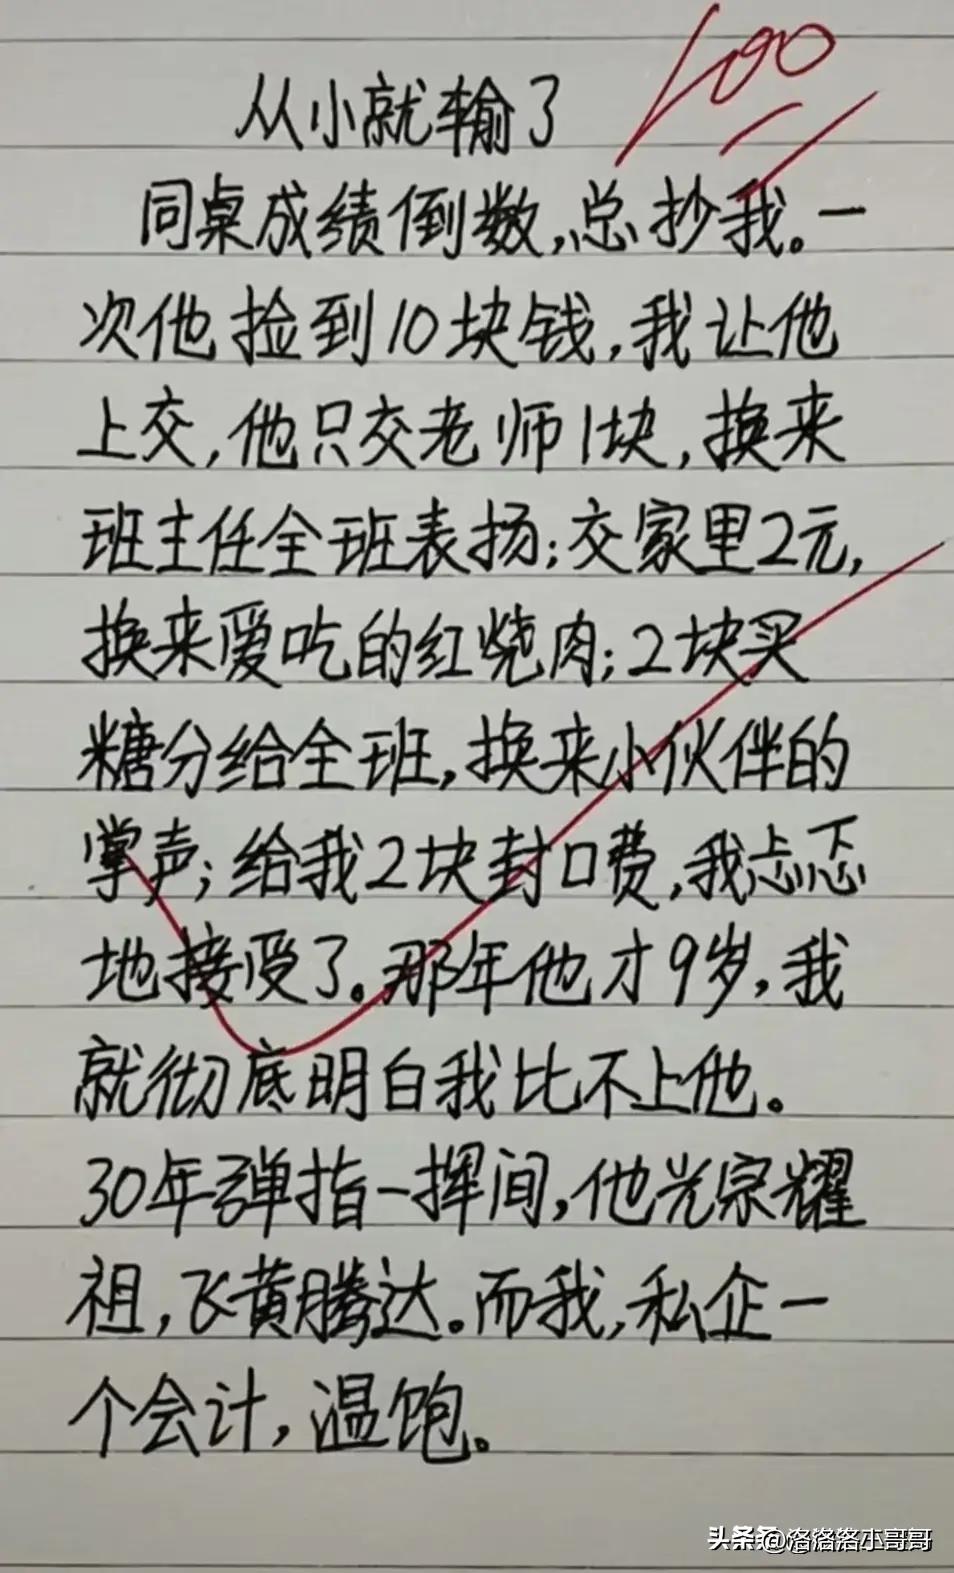 100
从小就输了
同桌成绩倒数,总抄我。一
次他捡到10块钱,我让他
上交,他只交老师1块,换来
班主任全班表扬;交家里2元,
换来爱吃的红烧肉;2块买
糖分给全班,换来小伙伴的
掌声;给我2块封口费,我忐忑
地接受了。那年他才9岁,我
就彻底明白我比不上他。
30年弹指一挥间,他光宗耀
祖,飞黄腾达。而我,私企一
个会计,温饱。
头条 @洛洛洛小哥哥